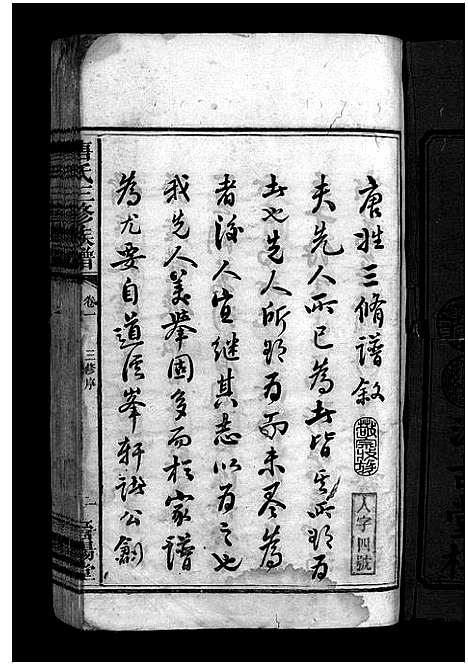 唐姓三脩譜敘
敬宗收族
人字四號
夫先人所已為者皆其所欲為
者也先人所欲為而未尽為
者後人宜継其志以為之也
我先人美舉固多而於家譜
為尤要自道溪峯軒諸公創
唐氏三修族譜
卷一
三修序
一
晉陽堂